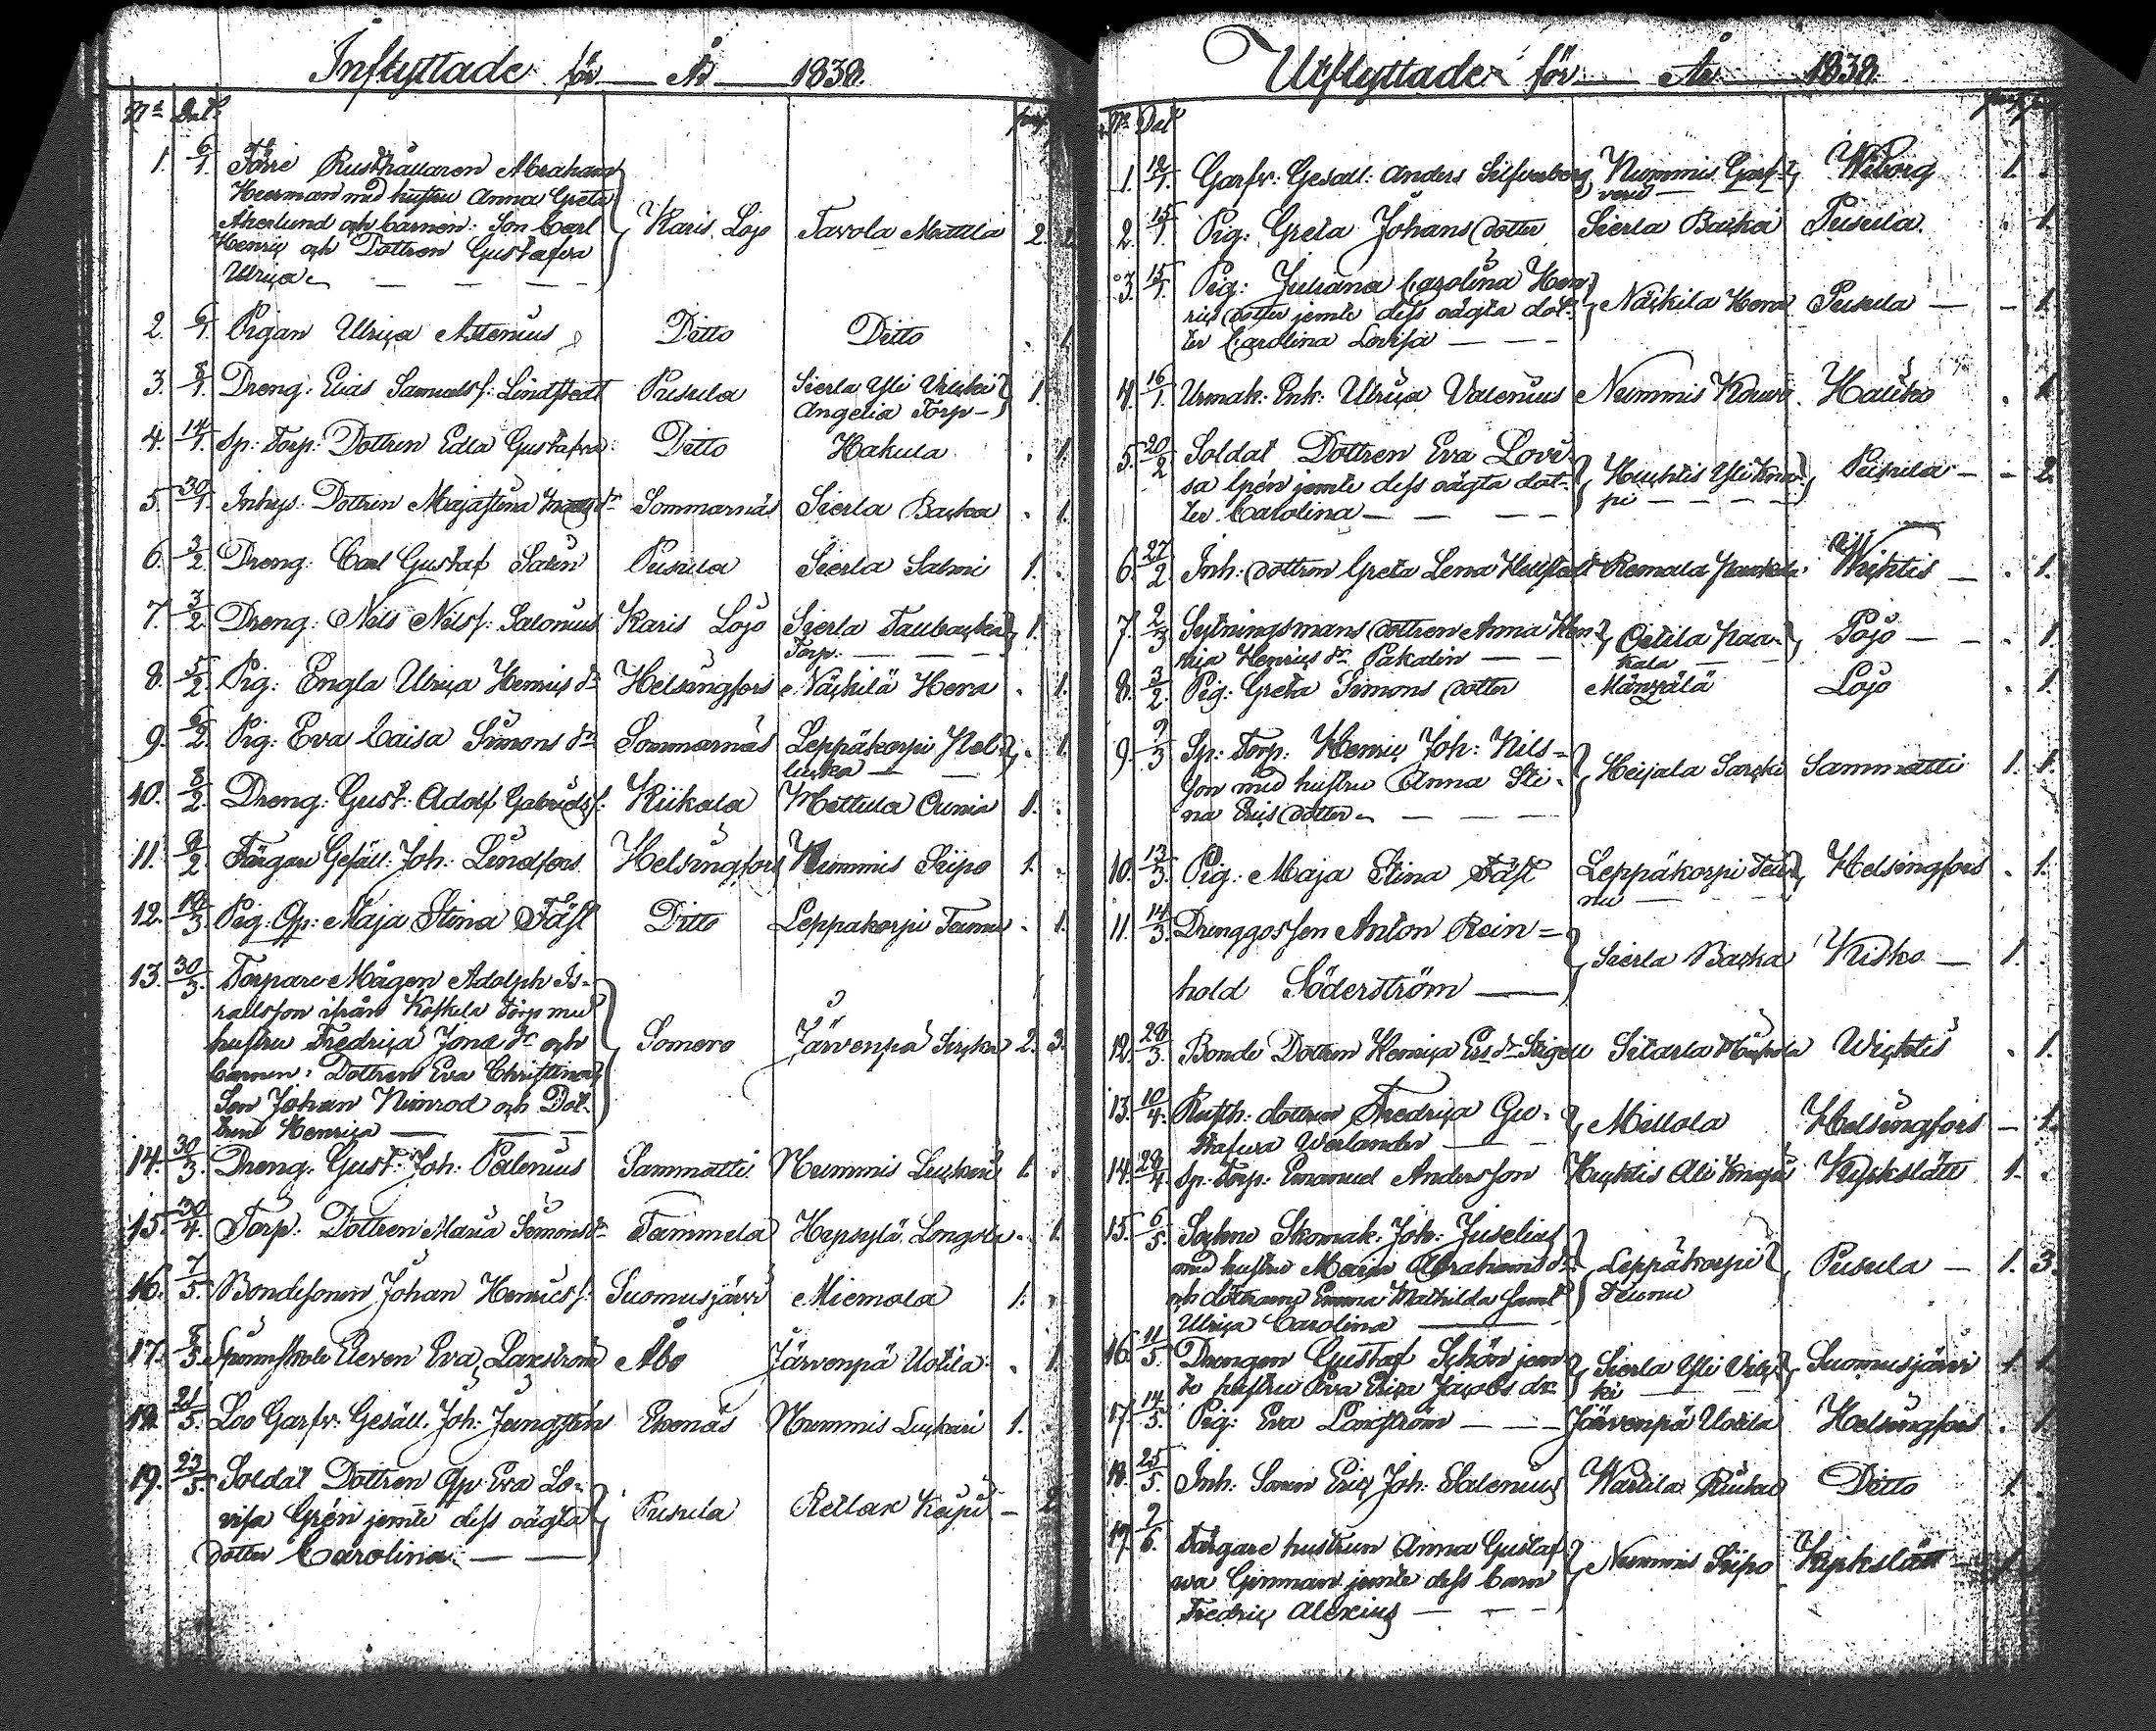 Inflyttade för År 1838.
No Dat.
1. 6/1. Förre Rusthållaren Abraham
Heerman med hustru Anna Greta
Åkerlund och barnen: Son Carl
Henric och Dottren Gustafva
Ulrica
Karis Lojo Tavola Mattila 2. 2.
2. 6/1. Pigan Ulrica Attenius Ditto Ditto . 1.
3. 8/1. Dreng: Elias Samuelss: Lindstedt Pusula Sierla Yli Viuki 1.
Angelia Torp
4. 14/1. Sp: Torp: Dottren Edla Gustafva Ditto Hakula . 1.
5. 30/1. Inhys: Dottren Majastina Sommarnäs Sierla Backa . 1.
6. 3/2. Dreng: Carl Gustaf Salin Pusula Sierla Salmi 1. .
7. 3/2. Dreng: Nils Nilss: Salonius Karis Lojo Sierla Taubacka 1.
Torp:
8. 5/2. Pig: Engla Ulrica Henricsdr Helsingfors Näckilä Hera . 1.
9. 6/2. Pig: Eva Caisa Simonsdr Sommarnäs Leppäkorpi . 1.
10. 8/2. Dreng: Gust: Adolf Gabrielss: Kiikala Mettula 1. .
11. 9/2. Färgare Gesäll: Joh: Lindfors Helsingfors Nummis Siipo 1. .
12. 19/3. Pig: Maja Stina Fäst Ditto Leppäkorpi Teunu . 1.
13. 30/3. Torpare Mågen Adolph Is-
raelsson ifrån Koskela Torp med
hustru Fredrica Jonæ dr och
barnen: Dottren Eva Christina
Son Johan Nimrod och Dot-
tren Henrica
Somero Järvenpä 2. 3.
14. 30/3. Dreng: Gust: Joh: Palenius Sammatti Nummis Luckari 1. .
15. 30/4. Torp: Dottren Maria Simonsdr Tammela Hepsylä . 1.
16. 7/5. Bondesonen Johan Henricss: Suomusjärvi Miemola 1. .
17. 8/5. Spinnskole Eleven Eva Laxström Åbo Järvenpä Uotila . 1.
18. 21/5. Loo Garfv: Gesäll: Joh: Ekenäs Nummis Luckari 1. .
19. 23/5. Soldat Dottren Eva Lo-
visa Grén jemte dess oägta
Dotter Carolina
Pusula Retlax Keupi – 2.
Utflyttade för År 1838.
No Dat
1. 12/1. Garfv: Gesäll: Anders Silfverberg Nummis Garf- Wiborg 1. .
veri
2. 15/1. Pig: Greta Johans dotter Sierla Backa Pusula . 1.
3. 15/1. Pig: Juliana Carolina Hen-
rics dotter jemte dess oägta dot-
ter Carolina Lovisa
Näckila Hera Pusula – 1.
4. 16/1. Urmak: Enk: Ulrica Valenius Nummis Haliko . 1.
5. 20/2 Soldat Dottren Eva Lovi-
sa Grén jemte dess oägta dot-
ter Carolina
Huhtis Yli Pusula – 2.
6. 27/2. Inh: dottren Greta Lena Hellstedt Remala Wichtis . 1.
7. 2/3 Sytningsmans dottren Anna Hen-
rica Henrics dr Pakalin Oitila Haa-
kala Pojo . 1.
8. 3/2. Pig: Greta Simons dotter Lojo . 1.
9. 9/3 Sp: Torp: Henric Joh: Nils-
son med hustru Anna Sti-
na Erics dotter
Heijala Sammatti 1. 1.
10. 13/3. Pig: Maja Stina Fäst Leppäkorpi Teu- Helsingfors . 1.
nu
11. 14/3. Drenggossen Anton Rein-
hold Söderström
Sierla Backa Kisko 1. .
12. 28/3. Bonde Dottren Henrica Wichtis . 1.
13. 10/4. Rusth: dottren Fredrica Gu-
stafva Werlander
Millola Helsingfors – 1.
14. 28/4. Sp: Torp: Emanuel Andersson Huchtis Ali Kyrkslätt 1. .
15. 6/5. Sockne Skomak: Joh: Juselius
med hustru Maria Abrahams dr
och döttrarna Emma Mathilda samt
Ulrica Carolina
Leppäkorpi
Teunu
Pusula 1. 3.
16. 11/5. Drengen Gustaf Schön jem-
te hustru Eva Erica Jacobs dr
Sierla Yli Suomusjärvi 1. 1.
17. 14/5. Pig: Eva Laxström Järvenpä Uotila Helsingfors . 1.
18. 25/5. Inh: Sonen Eric Joh: Salenius Ditto 1.
19. 2/6. Färgare hustrun Anna Gustaf-
va Ginman jemte dess barn
Fredric Alexius
Nummis Siipo Kyrkslätt